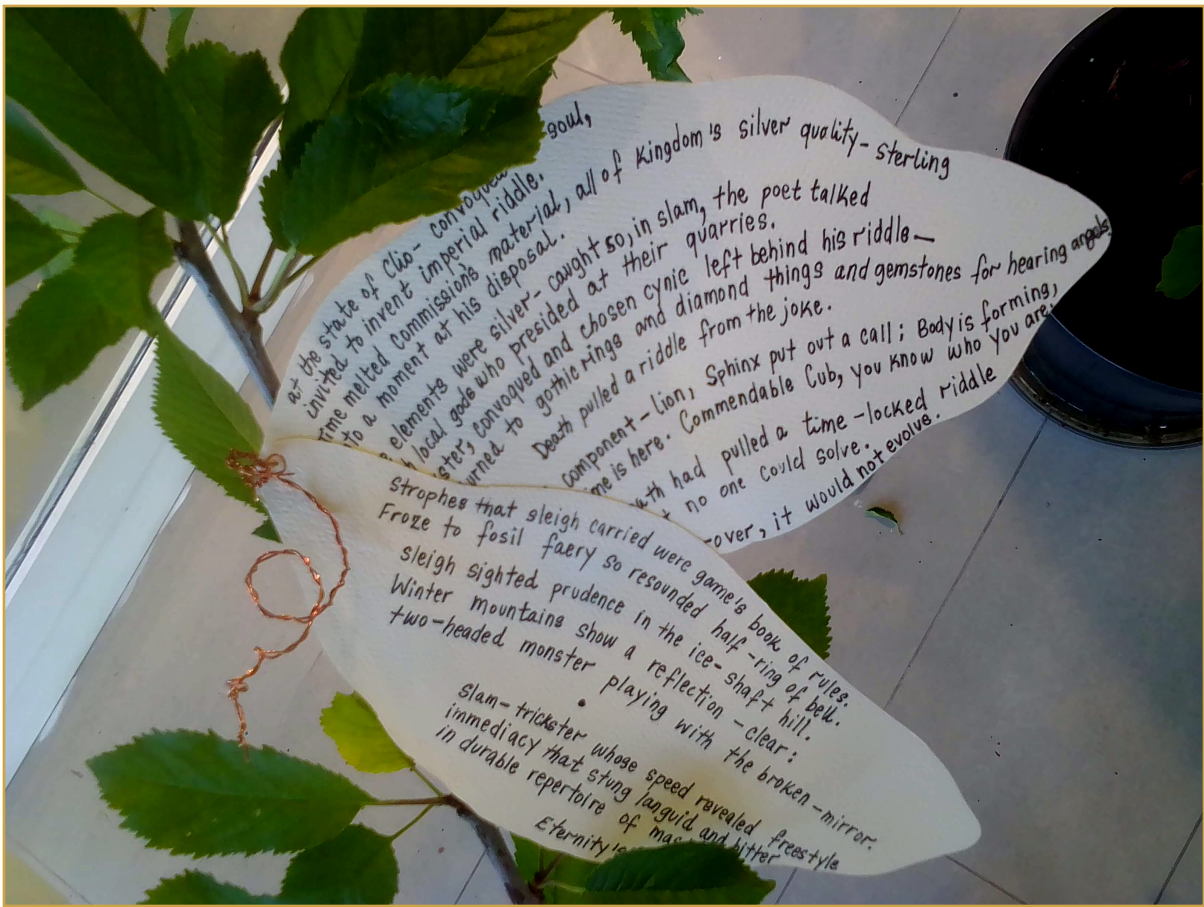 soul,
at the state of Clio- convoqued
invited to invent imperial riddle.
Time melted Commissions material, all of Kingdom's silver quality- sterling
to a moment at his disposal.
elements were silver- caught so, in slam, the poet talked
local gods who presided at their quarries.
convoqued and chosen cynic left behind his riddle—
to gothic rings and diamond things and gemstones for hearing angels
Death pulled a riddle from the joke.
component- lion, Sphinx put out a call; Body is forming,
me is here. Commendable Cub, you know who you are!
had pulled a time-locked riddle
no one could solve.
-over, it would not evolve.
Strophes that sleigh carried were game's book of rules.
Froze to fosil faery so resounded half-ring of bell.
sleigh sighted prudence in the ice-shaft hill.
Winter mountains show a reflection-clear:
two-headed monster playing with the broken-mirror.
Slam-trickster whose speed revealed freestyle
immediacy that stung languid and bitter
in durable repertoire of
Eternity's